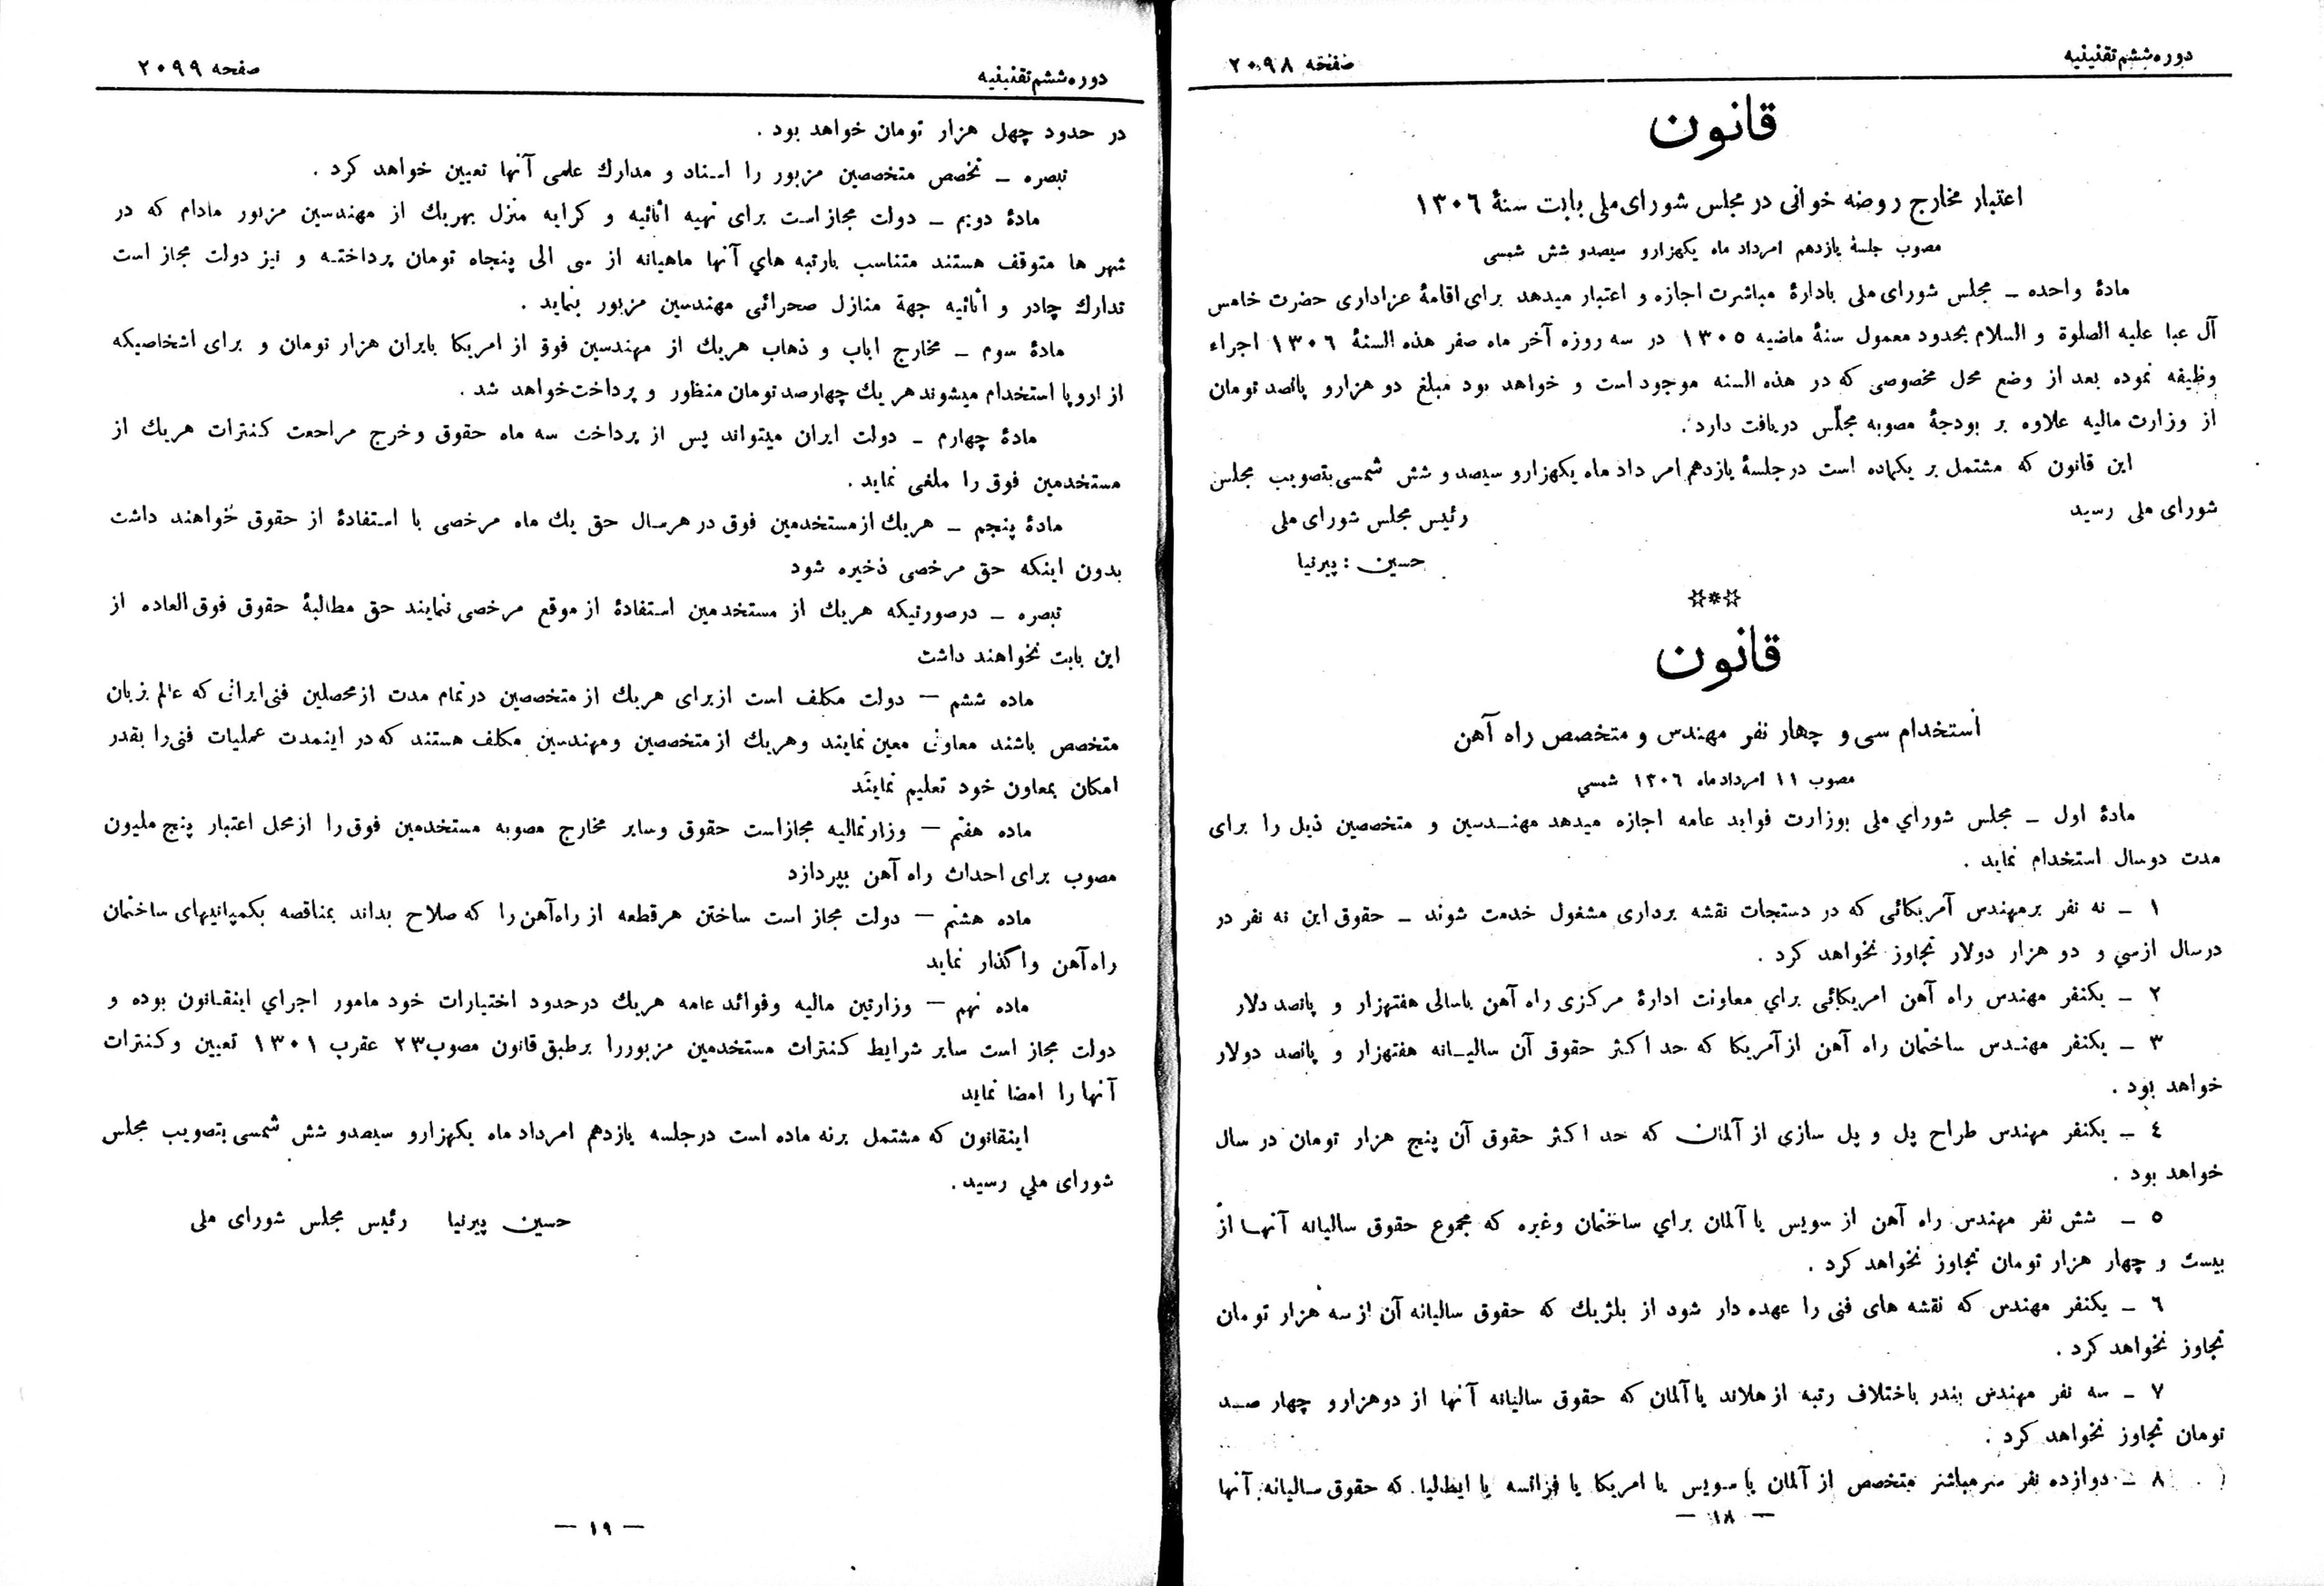 دوره ششم تقنینیه
صفحه ۲۰۹۸
قانون
اعتبار مخارج روضه خوانی در مجلس شورای ملی بابت سنهٔ ۱۳۰۶
مصوب جلسهٔ یازدهم امرداد ماه یکهزارو سیصدو شش شمسی
مادهٔ واحده ـ مجلس شورای ملی بادارهٔ مباشرت اجازه و اعتبار میدهد برای اقامهٔ عزاداری حضرت خامس
آل عبا علیه الصلوة و السلام بحدود معمول سنهٔ ماضیه ۱۳۰۵ در سه روزه آخر ماه صفر هذه السنهٔ ۱۳۰۶ اجراء
وظیفه نموده بعد از وضع محل مخصوصی که در هذه السنه موجود است و خواهد بود مبلغ دو هزارو پانصد تومان
از وزارت مالیه علاوه بر بودجهٔ مصوبه مجلس دریافت دارد.
این قانون که مشتمل بر یکماده است در جلسهٔ یازدهم امر داد ماه یکهزارو سیصد و شش شمسی بتصویب مجلس
شورای ملی رسید
رئیس مجلس شورای ملی
حسین : پیرنیا
☆*☆
قانون
استخدام سی و چهار نفر مهندس و متخصص راه آهن
مصوب ۱۱ امرداد ماه ۱۳۰۶ شمسي
مادهٔ اول ـ مجلس شوراي ملی بوزارت فواید عامه اجازه میدهد مهنـدسین و متخصصین ذیل را برای
مدت دوسال استخدام نماید .
۱ ـ نه نفر برمهندس آمریکائی که در دستجات نقشه برداری مشغول خدمت شوند ـ حقوق این نه نفر در
درسال ازسي و دو هزار دولار تجاوز نخواهد کرد .
۲ ـ یکنفر مهندس راه آهن امریکائی براي معاونت ادارهٔ مرکزی راه آهن باسالی هفتهزار و پانصد دلار
۳ ـ یکنفر مهنـدس ساختمان راه آهن از آمریکا که حد اکثر حقوق آن سالیـانه هفتهزار و پانصد دولار
خواهد بود .
٤ ـ یکنفر مهندس طراح پل و پل سازی از آلمان که حد اکثر حقوق آن پنج هزار تومان در سال
خواهد بود .
٥ ـ شش نفر مهندس راه آهن از سویس یا آلمان براي ساختمان وغیره که مجموع حقوق سالیانه آنهـا از
بیست و چهار هزار تومان تجاوز نخواهد کرد .
٦ ـ یکنفر مهندس که نقشه های فنی را عهده دار شود از بلژیك که حقوق سالیانه آن از سه هزار تومان
تجاوز نخواهد کرد .
۷ ـ سه نفر مهندس بندر باختلاف رتبه از هلاند یا آلمان که حقوق سالیانه آنها از دوهزارو چهار صـد
تومان تجاوز نخواهد کرد .
۸ ـ دوازده نفر سرمباشر متخصص از آلمان یا سویس یا امریکا یا فرانسه یا ایطالیا که حقوق سالیانه آنها
— ۱۸ —
دوره ششم تقنینیه
صفحه ۲۰۹۹
در حدود چهل هزار تومان خواهد بود .
تبصره ـ تخصص متخصصین مزبور را اسناد و مدارك علمی آنها تعیین خواهد کرد .
مادهٔ دویم ـ دولت مجاز است برای تهیه اثاثیه و کرایه منزل بهریك از مهندسین مزبور مادام که در
شهر ها متوقف هستند متناسب بارتبه هاي آنها ماهیانه از سی الی پنجاه تومان پرداختـه و نیز دولت مجاز است
تدارك چادر و اثاثیه جهة منازل صحرائی مهندسین مزبور بنماید .
مادهٔ سوم ـ مخارج ایاب و ذهاب هریك از مهندسین فوق از امریکا بایران هزار تومان و برای اشخاصیکه
از اروپا استخدام میشوند هر یك چهارصد تومان منظور و پرداخت خواهد شد .
مادهٔ چهارم ـ دولت ایران میتواند پس از پرداخت سه ماه حقوق و خرج مراجعت کنترات هریك از
مستخدمین فوق را ملغی نماید .
مادهٔ پنجم ـ هریك از مستخدمین فوق در هرسال حق یك ماه مرخصی با استفادهٔ از حقوق خواهند داشت
بدون اینکه حق مرخصی ذخیره شود
تبصره ـ درصورتیکه هریك از مستخدمین استفادهٔ از موقع مرخصی ننمایند حق مطالبهٔ حقوق فوق العاده از
این بابت نخواهند داشت
ماده ششم — دولت مکلف است از برای هریك از متخصصین درتمام مدت از محصلین فنی ایرانی که عالم بزبان
متخصص باشند معاونی معین نمایند و هریك از متخصصین و مهندسین مکلف هستند که در اینمدت عملیات فنی را بقدر
امکان بمعاون خود تعلیم نمایند
ماده هفتم — وزارتمالیه مجازاست حقوق وسایر مخارج مصوبه مستخدمین فوق را از محل اعتبار پنج ملیون
مصوب برای احداث راه آهن بپردازد
ماده هشتم — دولت مجاز است ساختن هرقطعه از راه‌آهن را که صلاح بداند بمناقصه بکمپانیهای ساختمان
راه‌آهن واگذار نماید
ماده نهم — وزارتین مالیه وفوائد عامه هریك درحدود اختیارات خود مامور اجراي اینقـانون بوده و
دولت مجاز است سایر شرایط کنترات مستخدمین مزبوررا برطبق قانون مصوب ۲۳ عقرب ۱۳۰۱ تعیین و کنترات
آنها را امضا نماید
اینقانون که مشتمل برنه ماده است درجلسه یازدهم امرداد ماه یکهزارو سیصدو شش شمسی بتصویب مجلس
شورای ملي رسید .
حسین پیرنیا رئیس مجلس شورای ملی
— ۱۹ —